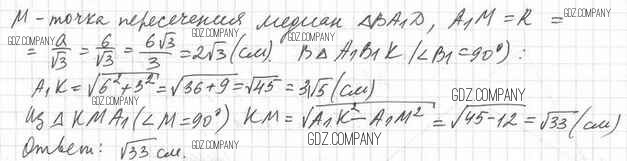 М - точка пересечения медиан ΔBA₁D, A₁M = R =
= a/√3 = 6/√3 = 6√3/3 = 2√3 (см). В Δ A₁B₁K (∠B₁=90°):
A₁K = √6²+3² = √36+9 = √45 = 3√5 (см)
Из Δ KMA₁ (∠M=90°) KM = √A₁K² - A₁M² = √45-12 = √33 (см)
Ответ: √33 см.
GDZ.COMPANY
GDZ.COMPANY
GDZ.COMPANY
GDZ.COMPANY
GDZ.COMPANY
GDZ.COMPANY
GDZ.COMPANY
GDZ.COMPANY